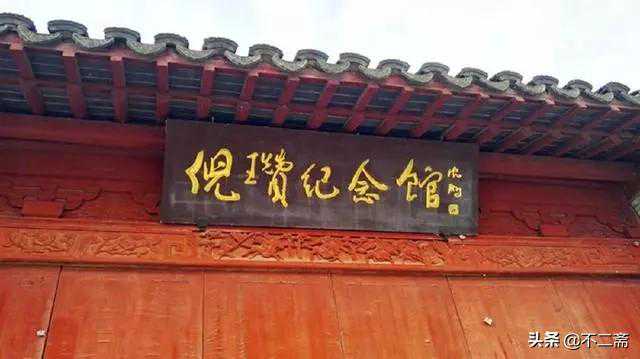 倪瓚纪念馆
头条 @不二斋